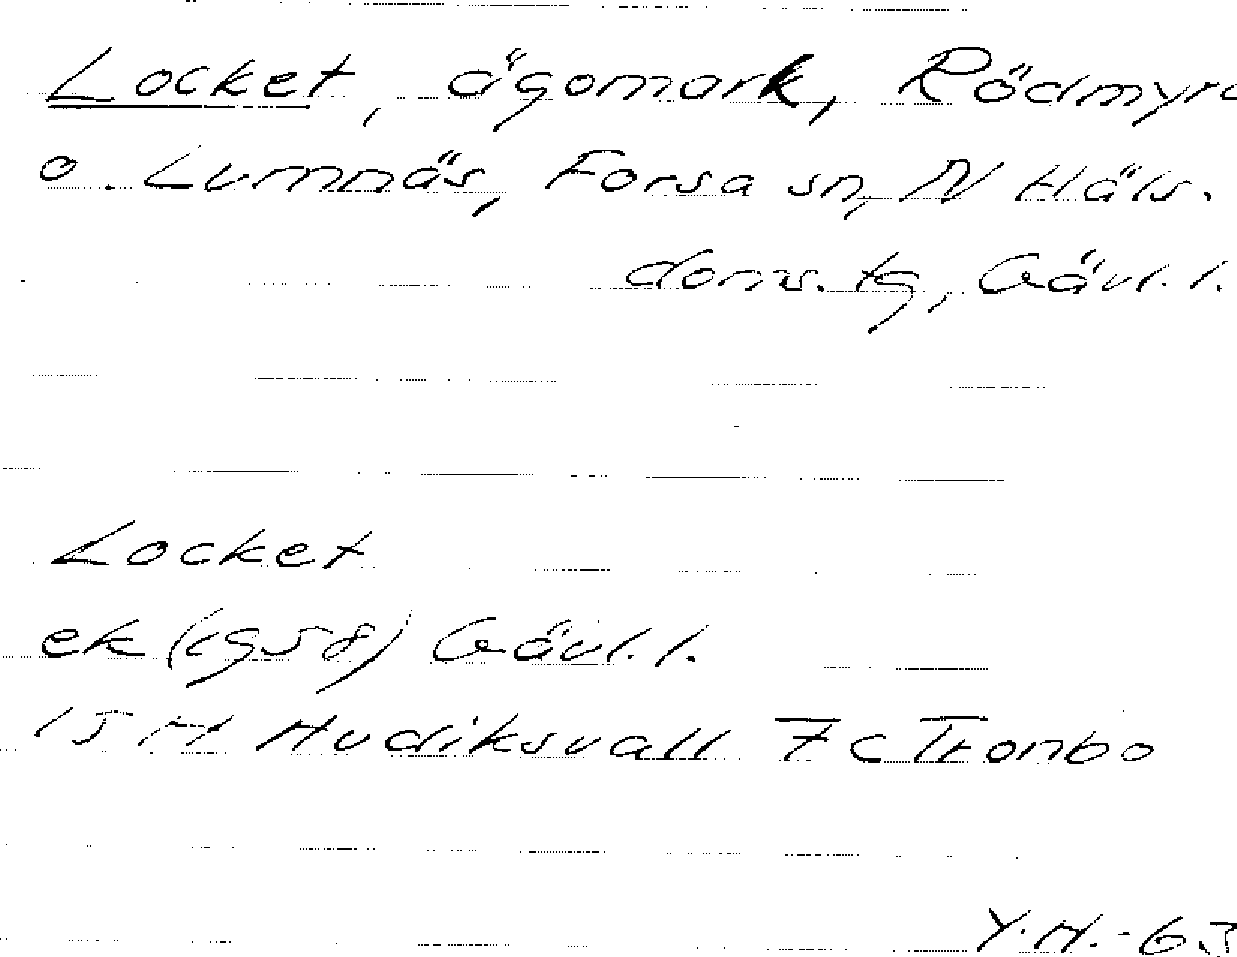 Locket, ägomark, Rödmyra
o. Lumnäs, Forsa sn, N Häls.
doms. tg, Gävl. l.
Locket
ek (1958) Gävl. l.
15 H Hudiksvall 7 c Trombo
Y.H.-63